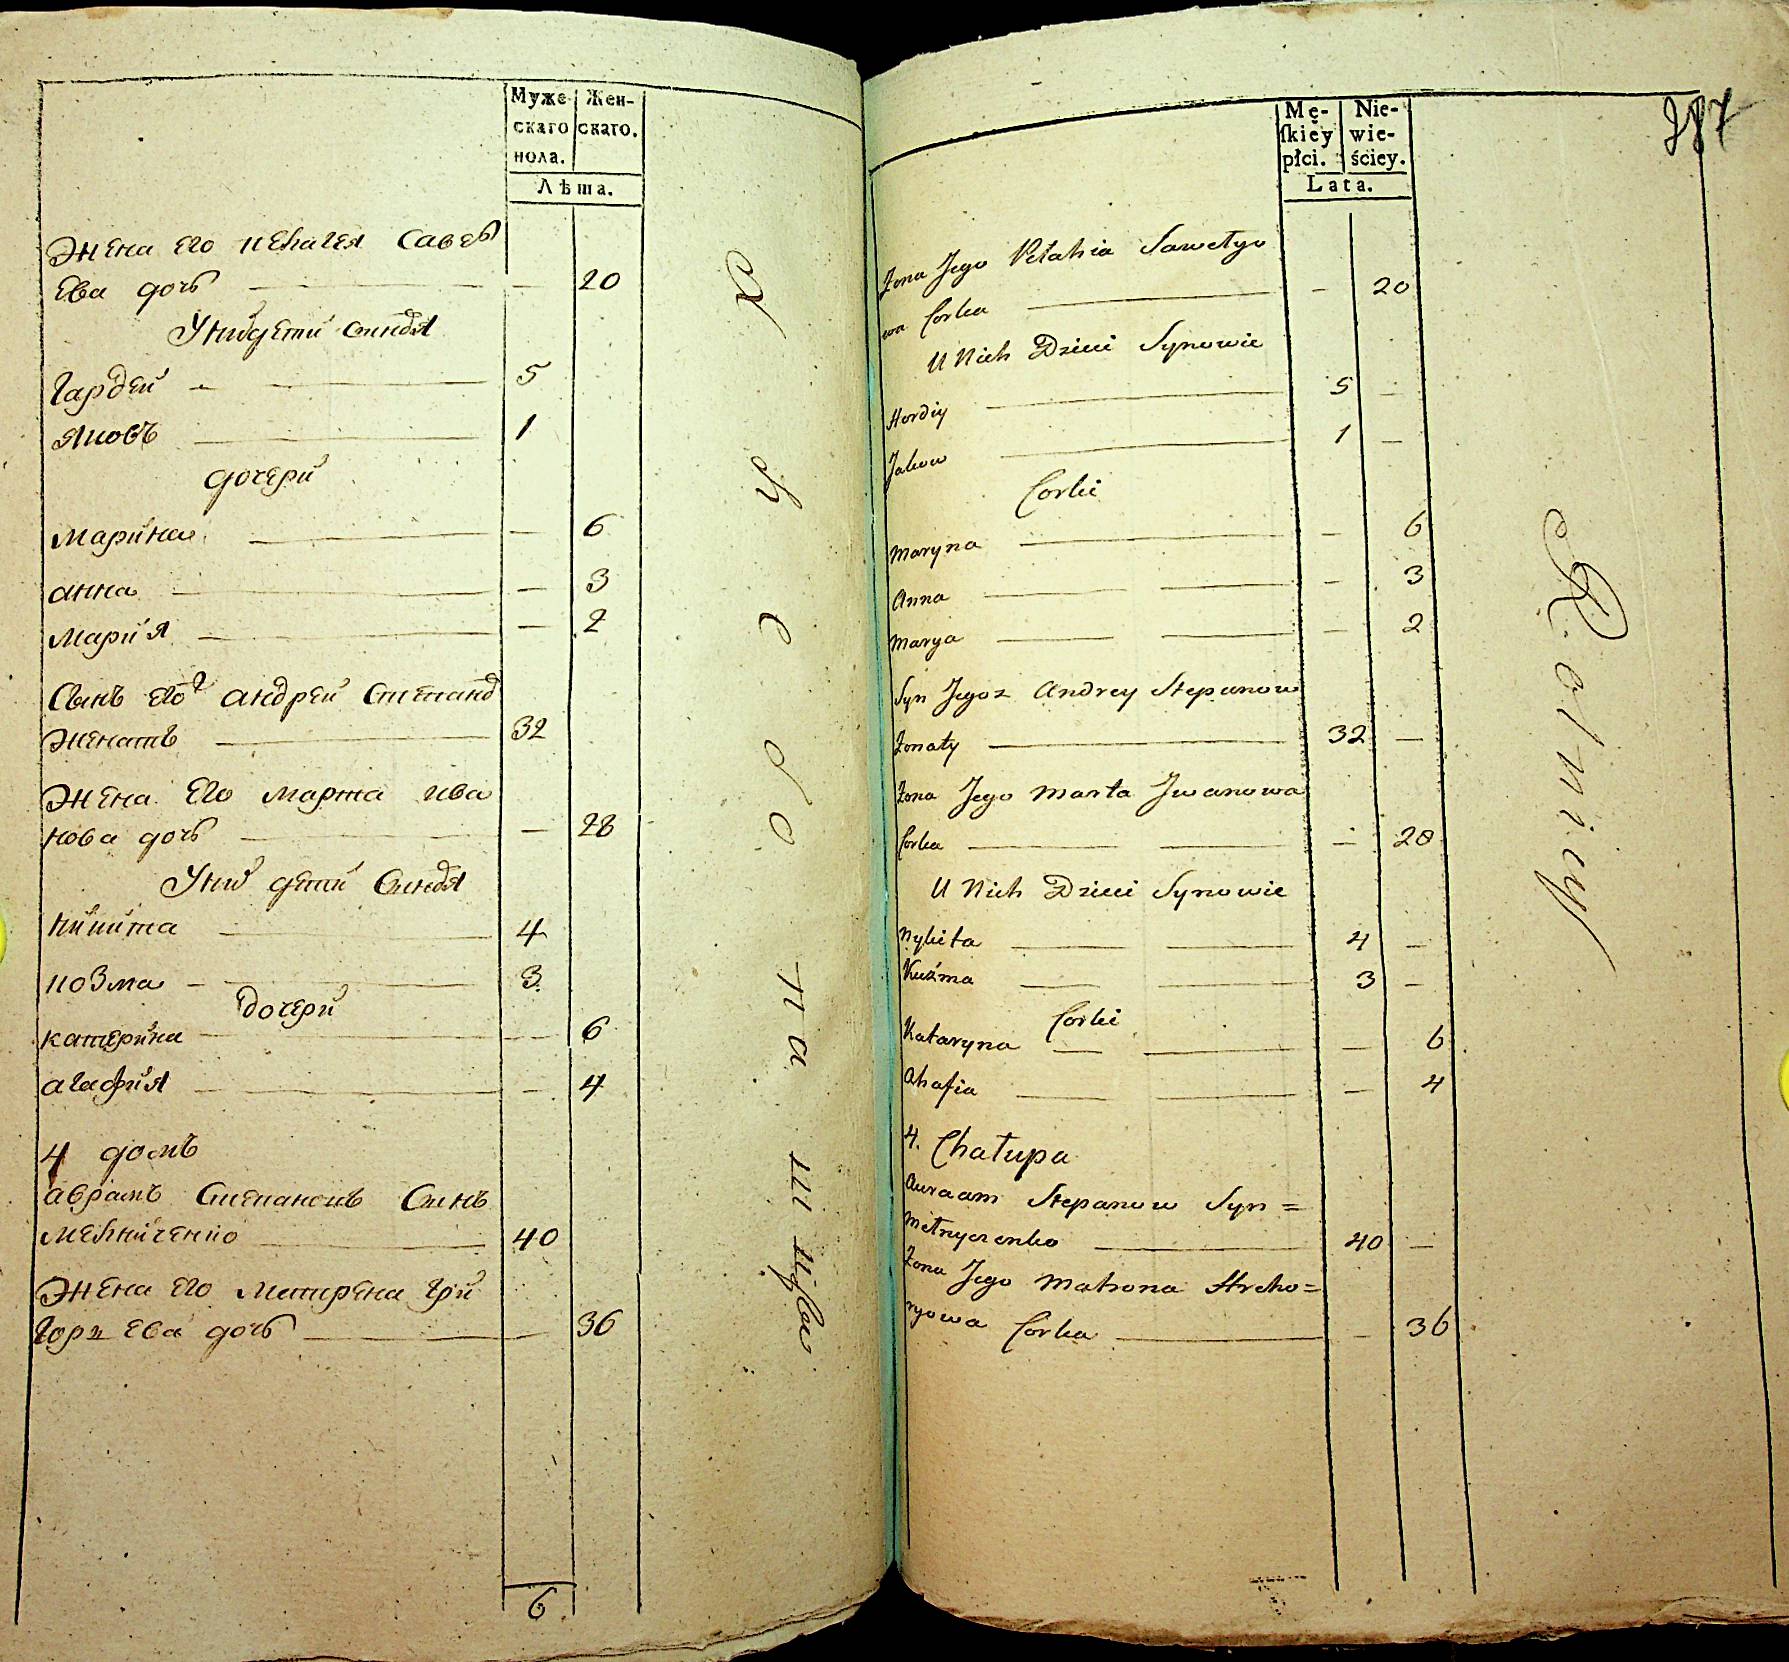 Муже
скаго
пола.
Жен-
скаго.
Лѣта.
Жена его пелагея савель
ева дочь 20
Унихдети синовья
Гардей 5
Яковъ 1
дочери
марина 6
анна 3
мария 2
Сынъ его 2 андрей степанов
женатъ 32
Жена его марта ива
нова дочь 28
Уних дети Синовья
никита 4
козма 3
дочери
катерина 6
агафия 4
4 домъ
аврамъ Степановъ Синъ
мелниченко 40
Жена его Матрена Гри
горьева дочь 36
6
Mę-
ſkiey
płci.
Nie-
wie-
ściey.
Lata.
287
Żona Jego Pelahia Sawelyo
wa Corka 20
U Nich Dzieci Synowie
Hordiy 5
Jakow 1
Corki
Maryna 6
Anna 3
Marya 2
Syn Jego 2 Andrey Stepanow
Żonaty 32
Żona Jego Marta Jwanowa
Corka 28
U Nich Dzieci Synowie
Nykita 4
Kuźma 3
Corki
Kataryna 6
Ahafia 4
4. Chałupa
Awraam Stepanow Syn =
Melnyczenko 40
Żona Jego Matrona Hreho=
ryowa Corka 36
Rolniczy